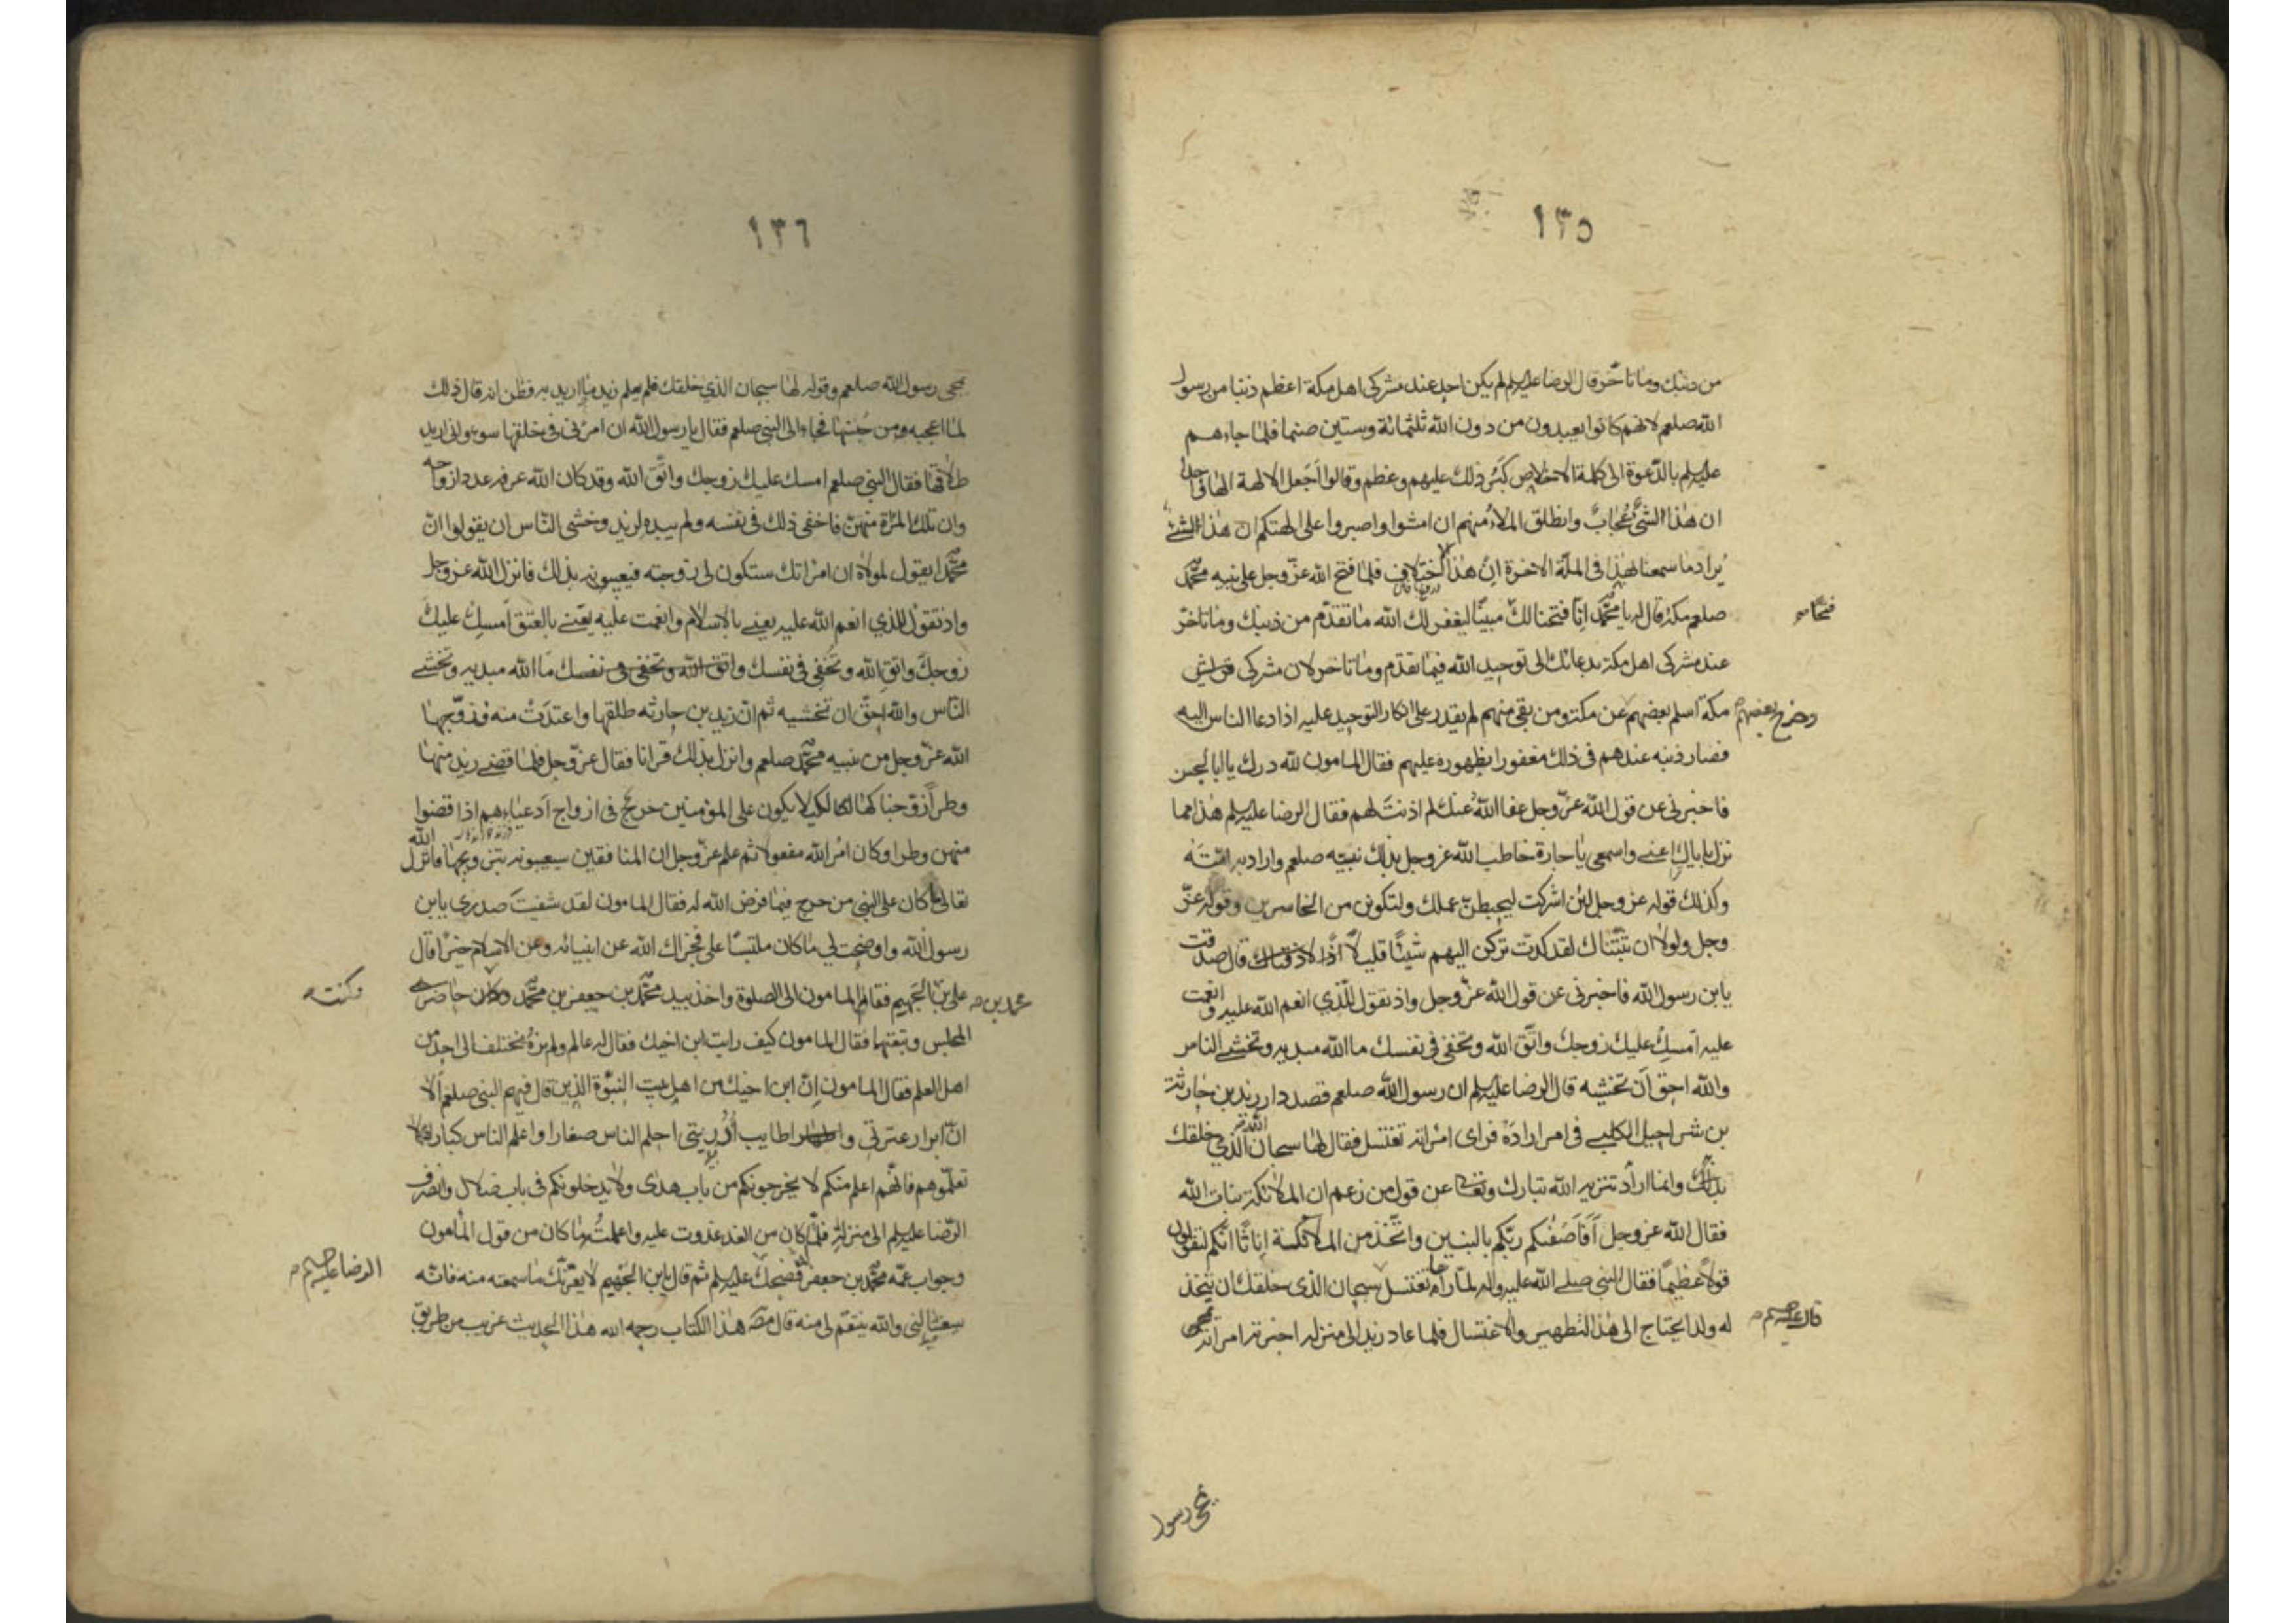 ١٣٥
من ذنبك وما تأخّر قال الرضا عليه السلم لم يكن احد عند مشركى اهل مكة اعظم ذنبا من رسول
الله صلعم لانهم كانوا يعبدون من دون الله ثلثمائة وستين صنما فلمّا جاءهم
عليه السلم بالدّعوة الى كلمة الاخلاص كَبُر ذلك عليهم وعظم وقالوا اَجَعل الالهة الهًا واحدًا
ان هذا الشئ عُجابٌ وانطلق الملاُ منهم ان امشوا واصبروا على الهتكم انّ هذا لشئ
يُراد ما سمعنا بهذا فى الملّة الاخرة اِنْ هذا الا اختلاق فلمّا فتح الله عزّ وجل على نبيه محمّد
صلعم مكة قال له يا محمّد اِنّا فتحنا لك مبينًا ليغفر لك الله ما تقدّم من ذنبك وما تأخّر
فتحًا
عند مشركى اهل مكة بدعائك الى توحيد الله فيما تقدّم وما تاخر لان مشركى
مكة اسلم بعضهم عن مكة ومن بقى منهم لم يقدر على انكار التوحيد عليه اذا دعا الناس اليه
وخرج بعضهم
فصار ذنبه عندهم فى ذلك مغفورا بظهوره عليهم فقال المامون لله درك يا ابا الحسن
فاخبرنى عن قول الله عزّ وجل عفا اللهُ عنك لم اذنتَ لهم فقال الرضا عليه السلم هذا مما
نزل باياك اعنى واسمعى يا جارة خاطب الله عز وجل بذلك نبيّه صلعم واراد به امّتَه
وكذلك قوله عز وجل لئن اشركت ليحبطنّ عملك ولتكونن من الخاسرين وقوله عزّ
وجل ولولا ان ثبّتناك لقد كدتَ تركن اليهم شيئًا قليلًا اذًا لاذقناك قال صدقت
يابن رسول الله فاخبرنى عن قول الله عزّ وجل واذ تقول للّذى انعم الله عليه وانعمت
عليه اَمسِك عليك زوجك واتّق الله وتخفى فى نفسك ما الله مبديه وتخشى الناس
والله احق اَن تخشيه قال الرضا عليه السلم ان رسول الله صلعم قصد دار زيد بن حارثة
بن شراحيل الكلبى فى امر ارادَه فراى امرأته تغتسل فقال لها سبحان الذى خلقك
بذلك وانما اراد تنزيه الله تبارك وتعالى عن قول من زعم ان الملائكة بنات الله
فقال الله عز وجل اَفَاَصفٰيكم ربّكم بالبنين واتّخذ من الملائكة اِناثًا انّكم لتقولون
قولًا عظيمًا فقال النبى صلى الله عليه واله لمّا راها تغتسل سبحان الذى خلقك ان يتخذ
له ولدا يحتاج الى هذا التطهير والاغتسال فلما عاد زيد الى منزله اخبرته امرأته
بمجئ رسول
١٣٦
بمجى رسول الله صلعم وقوله لها سبحان الذى خلقك فلم يعلم زيد ما اريد به فظن انه قال ذلك
لما اعجبه من حُسنها فجاء الى النبى صلعم فقال يا رسول الله ان امرأتى فى خلقها سوء وانى اريد
طلاقها فقال النبى صلعم امسك عليك زوجك واتّق الله وقد كان الله عرفه عدد ازواجه
وان تلك المرٔة منهنّ فاخفى ذلك فى نفسه ولم يبده لزيد وخشى النّاس ان يقولوا انّ
محمّدا يقول لمولاه ان امرأتك ستكون لى زوجته فيعيبونه بذلك فانزل الله عز وجل
واذ تقول للذى انعم الله عليه يعنى بالاسلام وانعمت عليه يعنى بالعتق اَمسِك عليكَ
زوجكَ واتقِ الله وتخفى فى نفسك واتق الله وتخفى فى نفسك ما الله مبديه وتخشى
النّاس والله احقّ ان تخشيه ثم انّ زيد بن حارثه طلقها واعتدّتْ منه فزوّجها
الله عزّ وجل من نبيه محمّد صلعم وانزل بذلك قرانا فقال عزّ وجل فلمّا قضى زيد منها
وطرًا زوّجناكها لكيلا يكون على المؤمنين حرج فى ازواج اَدعياءهم اذا قضوا
منهن وطرا وكان امرُ الله مفعولا ثم علم عزّ وجل ان المنافقين سيعيبونه بتزويجها فانزل الله
تعالى ما كان على النبى من حرج فيما فرض الله له فقال المامون لقد شفيتَ صدرى يابن
رسول الله واوضحت لى ما كان ملتبسًا علىّ فجزاك الله عن انبيائه وعن الاسلام خيرًا قال
على بن الجهم فقام المامون الى الصلوة واخذ بيد محمّد بن جعفر بن محمّد وكان حاضر
محمد بن
وكنت
المجلس وتبعتهما فقال المامون كيف رايت ابن اخيك فقال له عالم ولم نرهُ يختلف الى احد من
اهل العلم فقال المامون اِنّ ابن اخيك من اهل بيت النبوّة الذين قال فيهم النبى صلعم اَلا
انّ ابرار عترتى واطايب اُرومتى احلم الناس صغارا واعلم الناس كبارا فلا
تعلّموهم فانّهم اعلم منكم لا يخرجونكم من باب هدى ولا يدخلونكم فى باب ضلال وانصرف
الرّضا عليه السلم الى منزله فلمّا كان من الغد غدوت عليه واعلمتُه ما كان من قول المأمون
وجواب عمّه محمّد بن جعفر فضحك عليه السلم ثم قال يابن الجهم لا يغرّنّك ما سمعته منه فانّه
الرضا عليه السلم
سيغتالنى والله ينتقم لى منه قال مصّ هذا الكتاب رحمه الله هذا الحديث غريب من طريق